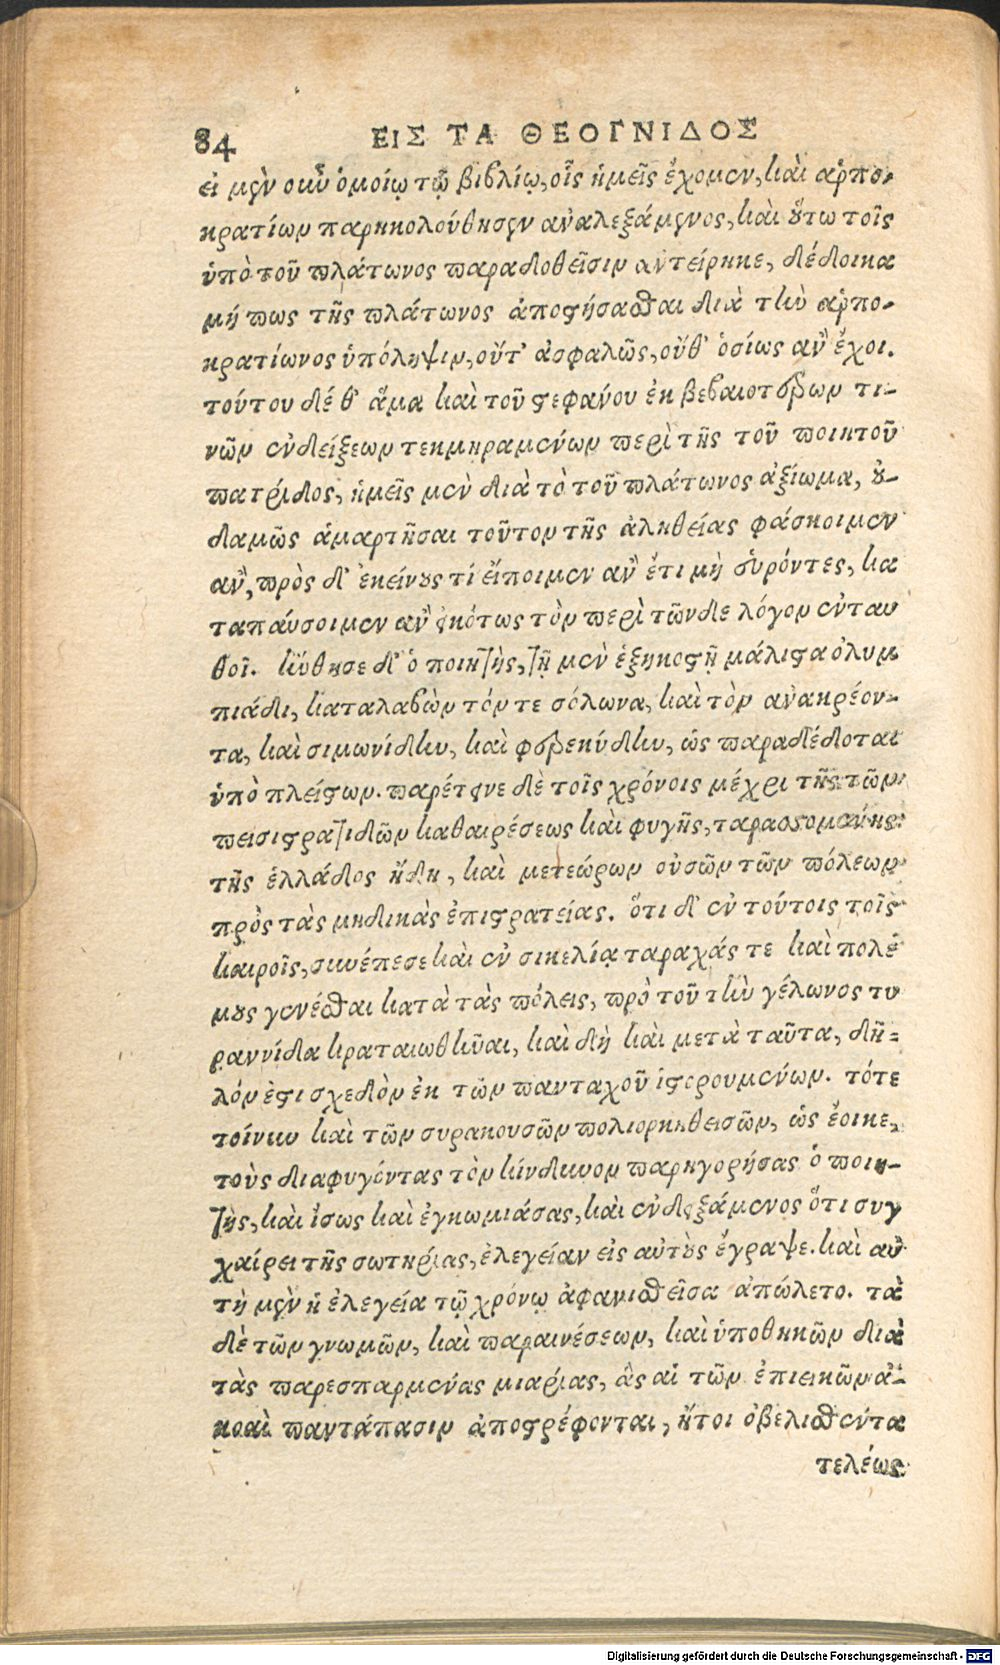 84 ΕΙΣ ΤΑ ΘΕΟΓΝΙΔΟΣ
εἰ μὲν οὖν ὁμοίῳ τῷ βιβλίῳ, οἷς ἡμεῖς ἔχομεν, καὶ ἁρπο-
κρατίων παρηκολούθησεν ἀναλεξάμενος, καὶ οὕτω τοῖς
ὑπὸ τοῦ πλάτωνος παραδοθεῖσιν ἀντείρηκε, δέδοικα
μή πως τῆς πλάτωνος ἀποστήσασθαι διὰ τὴν ἁρπο-
κρατίωνος ὑπόληψιν, οὔτ' ἀσφαλῶς, οὔθ' ὁσίως ἂν ἔχοι.
τούτου δέ θ' ἅμα καὶ τοῦ στεφάνου ἐκ βεβαιοτέρων τι-
νῶν ἐνδείξεων τεκμηραμένων περὶ τῆς τοῦ ποιητοῦ
πατρίδος, ἡμεῖς μὲν διὰ τὸ τοῦ πλάτωνος ἀξίωμα, οὐ-
δαμῶς ἁμαρτῆσαι τοῦτον τῆς ἀληθείας φάσκοιμεν
ἂν, πρὸς δ' ἐκείνους τί εἴποιμεν ἂν ἔτι μὴ εὑρόντες, κα
ταπαύσοιμεν ἂν εἰκότως τὸν περὶ τῶνδε λόγον ἐνταυ
θοῖ. ἤνθησε δ' ὁ ποιητὴς, τῇ μὲν ἑξηκοστῇ μάλιστα ὀλυμ
πιάδι, καταλαβὼν τόν τε σόλωνα, καὶ τὸν ἀνακρέον-
τα, καὶ σιμωνίδην, καὶ φερεκύδην, ὡς παραδέδοται
ὑπὸ πλείστων. παρέτεινε δὲ τοῖς χρόνοις μέχρι τῆς τῶν
πεισιστρατιδῶν καθαιρέσεως καὶ φυγῆς, ταρασσομένης
τῆς ἑλλάδος ἤδη, καὶ μετεώρων οὐσῶν τῶν πόλεων
πρὸς τὰς μηδικὰς ἐπιστρατείας. ὅτι δ' ἐν τούτοις τοῖς
καιροῖς, συνέπεσε καὶ ἐν σικελίᾳ ταραχάς τε καὶ πολέ
μους γενέσθαι κατὰ τὰς πόλεις, πρὸ τοῦ τὴν γέλωνος τυ
ραννίδα κραταιωθῆναι, καὶ δὴ καὶ μετὰ ταῦτα, δῆ-
λόν ἐστι σχεδὸν ἐκ τῶν πανταχοῦ ἱστορουμένων. τότε
τοίνυν καὶ τῶν συρακουσῶν πολιορκηθεισῶν, ὡς ἔοικε,
τοὺς διαφυγόντας τὸν κίνδυνον παρηγορήσας ὁ ποιη-
τὴς, καὶ ἴσως καὶ ἐγκωμιάσας, καὶ ἐνδειξάμενος ὅτι συγ
χαίρει τῆς σωτηρίας, ἐλεγείαν εἰς αὐτοὺς ἔγραψε. καὶ αὕ
τη μὲν ἡ ἐλεγεία τῷ χρόνῳ ἀφανισθεῖσα ἀπώλετο. τὰ
δὲ τῶν γνωμῶν, καὶ παραινέσεων, καὶ ὑποθηκῶν διὰ
τὰς παρεσπαρμένας μιαρίας, ἃς αἱ τῶν ἐπιεικῶν ἀ-
κοαὶ παντάπασιν ἀποστρέφονται, ἤτοι ὀβελισθέντα
τελέως